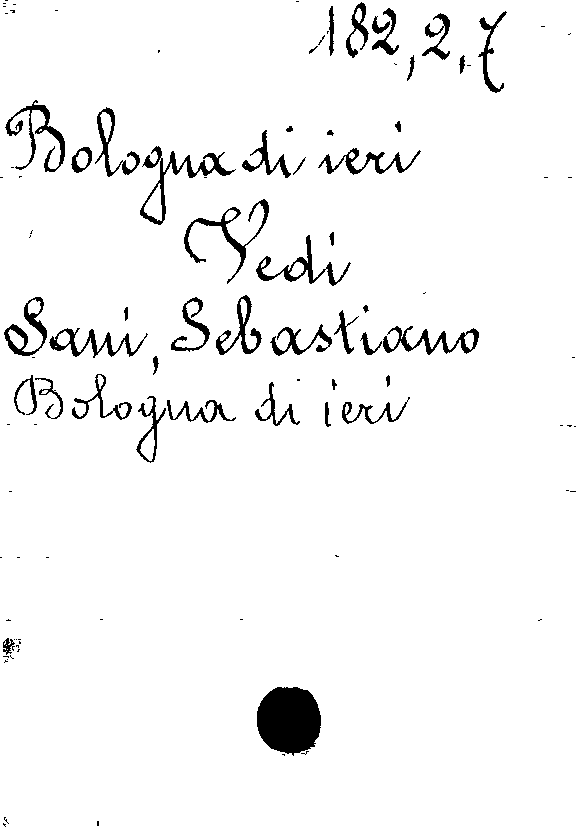 182,2,7
Bologna di ieri
Vedi
Sani, Sebastiano
Bologna di ieri